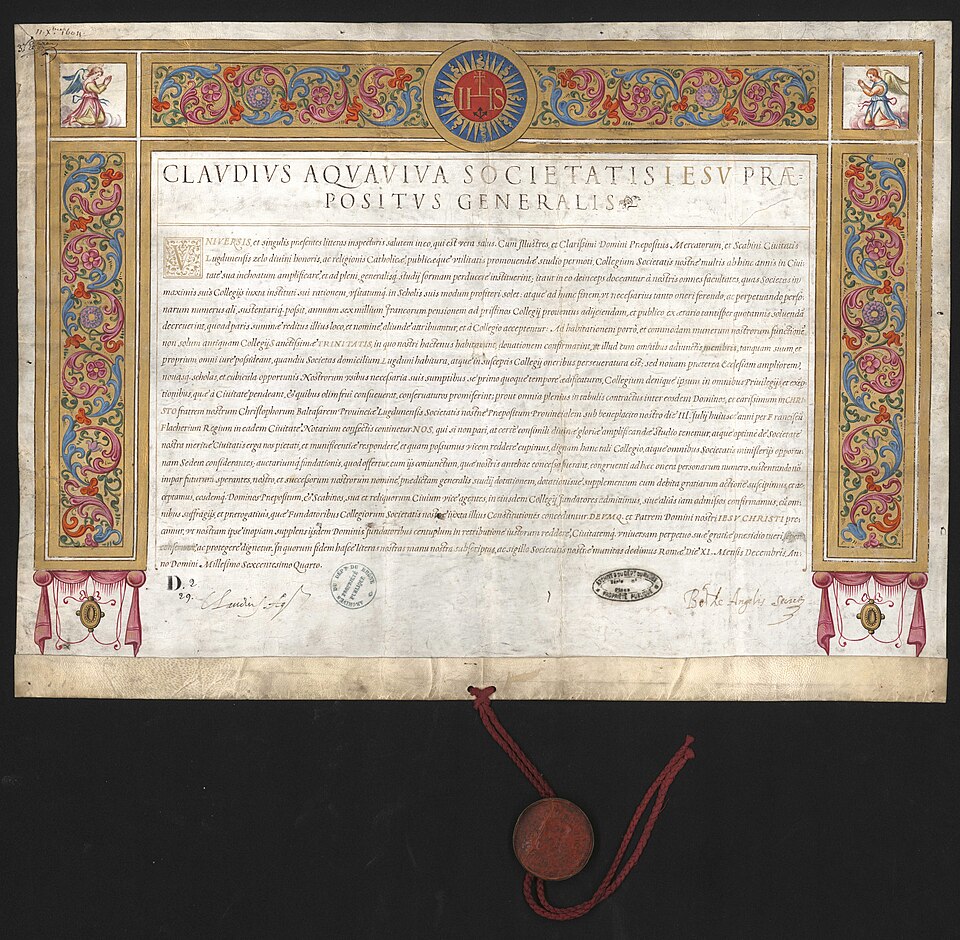 11. X.bre 1604
IHS
CLAVDIVS AQVAVIVA SOCIETATIS IESV PRÆ=
POSITVS GENERALIS
VNIVERSIS, et singulis præsentes litteras inspecturis salutem in eo, qui est vera salus. Cum Illustres, et Clarissimi Domini Præpositus Mercatorum, et Scabini Ciuitatis
Lugdunensis zelo diuini honoris, ac religionis Catholicæ publicæque vtilitatis promouendæ studio permoti, Collegium Societatis nostræ multis ab hinc annis in Ciui
tate sua inchoatum amplificare, et ad pleni, generalisq. studij formam perducere instituerint; ita ut in eo deinceps doceantur à nostris omnes facultates, quas Societas in
maximis suis Collegijs iuxta instituti sui rationem, vsitatumq. in Scholis suis modum profiteri solet: atque ad hunc finem, et necessarijs tanto oneri ferendo, ac perpetuando perso
narum numerus ali, sustentariq. possit, annuam sex millium francorum pensionem ad pristinos Collegij prouentus adijciendam, et publico ex ærario tantisper quotannis soluendã
decreuerint, quoad paris summæ reditus illius loco, et nomine aliunde attribuantur, et à Collegio acceptentur: Ad habitationem porrò, et commodam munerum nostrorum functionẽ,
non solum antiquam Collegij Sanctissimæ TRINITATIS, in quo nostri hactenus habitarunt, donationem confirmarint, et illud cum omnibus adiunctis membris, tanquam suum et
proprium omni iure possideant, quandiu Societas domicilium Lugduni habitura, atque in susceptis Collegij oneribus perseueratura est: sed nouam præterea Ecclesiam ampliorem,
nouasq. scholas, et cubicula opportunis Nostrorum vsibus necessaria suis sumptibus se primo quoque tempore ædificaturos, Collegium denique ipsum in omnibus Priuilegijs et exẽp
tionibus, quæ à Ciuitate pendeant, et quibus olim frui consueuerat, conseruaturos promiserint; prout omnia plenius in tabulis contractus inter eosdem Dominos, et carissimum in CHRI
STO fratrem nostrum Christophorum Baltasarem Prouinciæ Lugdunensis Societatis nostræ Præpositum Prouincialem sub beneplacito nostro die III. Julij huiusce anni per Franciscũ
Flacherium Regium in eadem Ciuitate Notarium confectis continetur. NOS, qui si non pari, at certè consimili diuinæ gloriæ amplificandæ studio tenemur, atque optimè de Societate
nostra meritæ Ciuitatis erga nos pietati, et munificentiæ respondere, et quam possumus vicem reddere cupimus, dignam hanc tali Collegio, atque omnibus Societatis ministerijs opportu
nam Sedem considerantes, auctariumq. fundationis, quod offertur, cum ijs coniunctum, quæ nostris antehac concessa fuerant, congruenti ad hæc onera personarum numero sustentando nũ
impar futurum, sperantes, nostro, et successorum nostrorum nomine, prædictam generalis studij dotationem, dotationisue supplementum cum debita gratiarum actione suscipimus, et ac
ceptamus, eosdemq. Dominos Præpositum, et Scabinos, sua et reliquorum Ciuium vice agentes, in eiusdem Collegij fundatores admittimus, siue aliàs iam admissos confirmamus, cũ om
nibus suffragijs, et prærogatiuis, quæ Fundatoribus Collegiorum Societatis nostræ iuxta illius Constitutiones conceduntur. DEVMQ. et Patrem Domini nostri IESV CHRISTI pre
camur, vt nostram ipse inopiam supplens ijsdem Dominis fundatoribus centuplum in retributione iustorum reddere, Ciuitatemq. vniuersam perpetuo suæ gratiæ præsidio
conseruare, ac protegere dignetur. In quorum fidem hasce literas nostras manu nostra subscriptas, ac sigillo Societatis nostræ munitas dedimus Romæ Die XI. Mensis Decembris An
no Domini Millesimo Sexcentesimo Quarto.
D. 2
29.
ARCHIVES DU DÉP.T DU RHONE
PROPRIÉTÉ PUBLIQUE
PROPRIÉTÉ PUBLIQUE